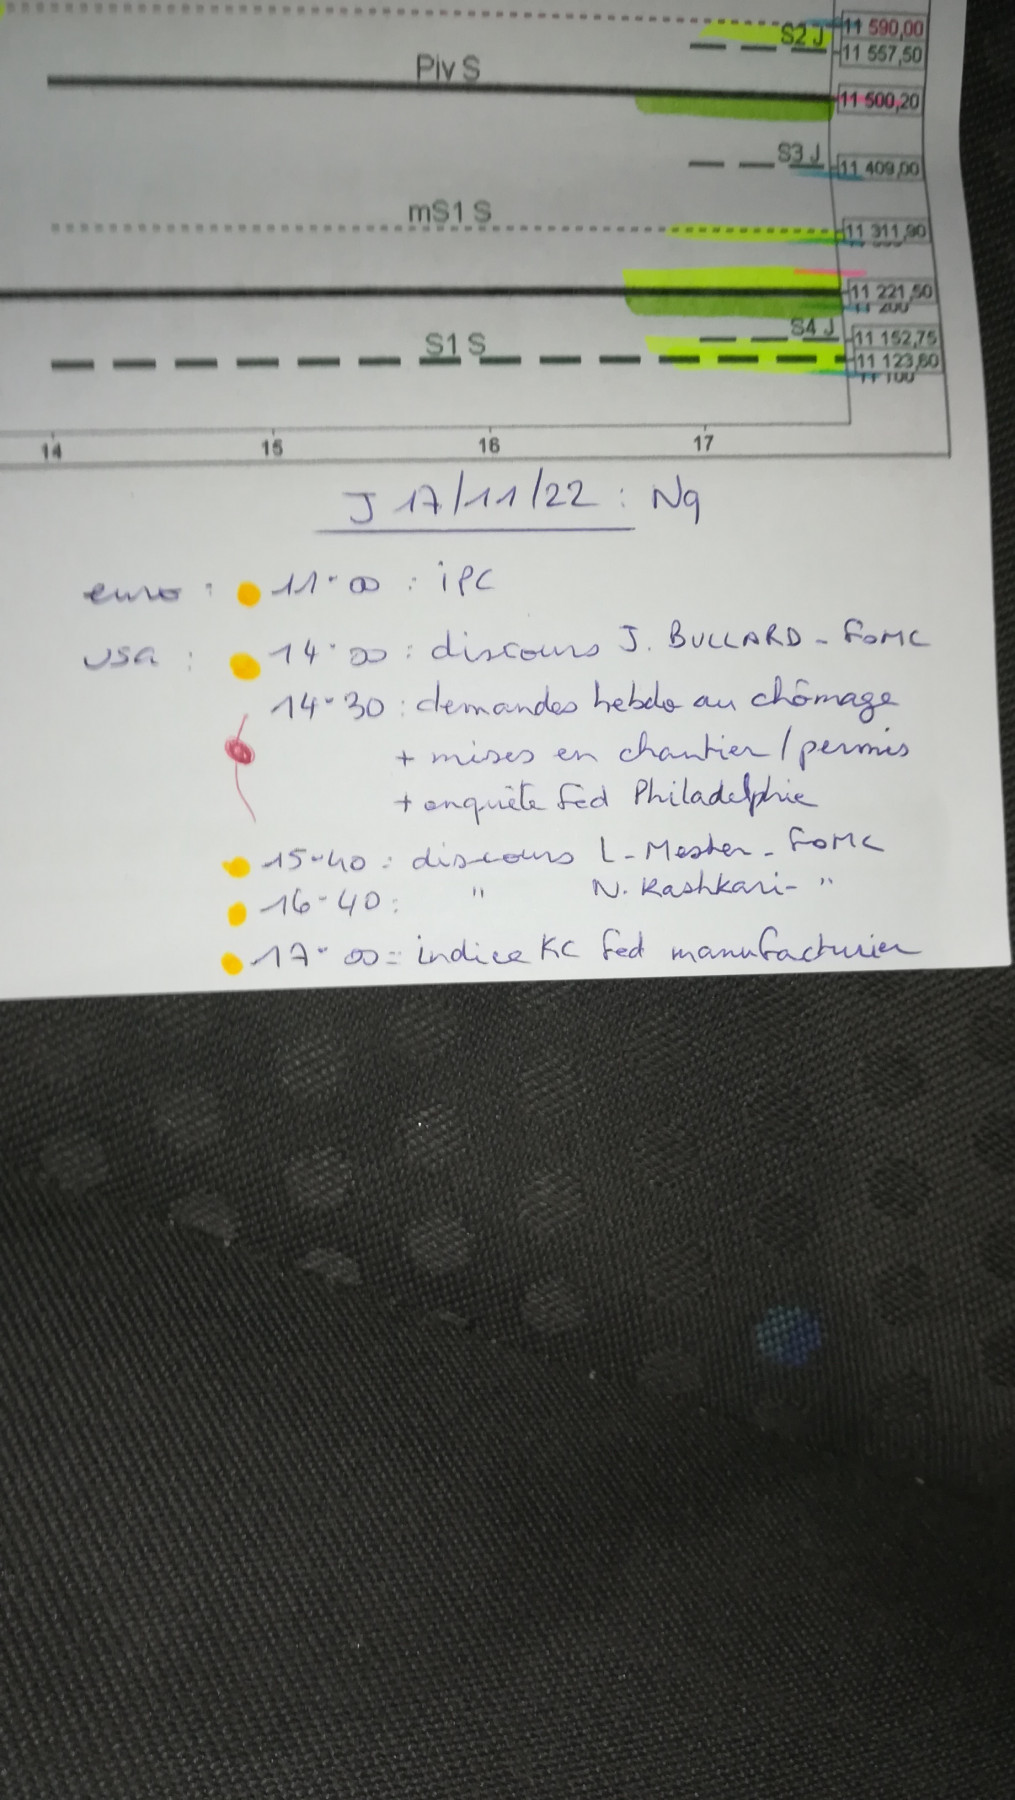 11 590,00
S2 J
11 557,50
Piv S
11 500,20
S3 J
11 409,00
mS1 S
11 311,90
11 221,50
11 200
S4 J
11 152,75
S1 S
11 123,60
11 100
14 15 16 17
J 17/11/22 : Nq
euro : 11-00 : iPC
USA : 14-00 : discours J. BULLARD - FOMC
14-30 : demandes hebdo au chômage
+ mises en chantier / permis
+ enquête Fed Philadelphie
15-40 : discours L. Mester - FOMC
16-40 : " N. Kashkari - "
17-00 = indice KC Fed manufacturier